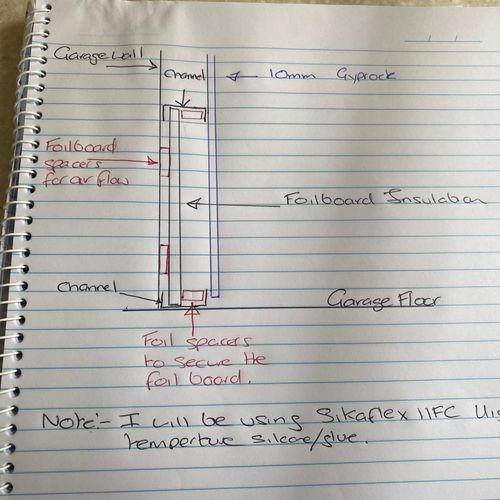 Garage wall
Channel
10mm Gyprock
Foilboard
spacers
for air flow
Foilboard Insulation
Channel
Garage Floor
Foil spacers
to secure the
foil board.
Note:- I will be using Sikaflex 11FC
temperture silcone/glue.